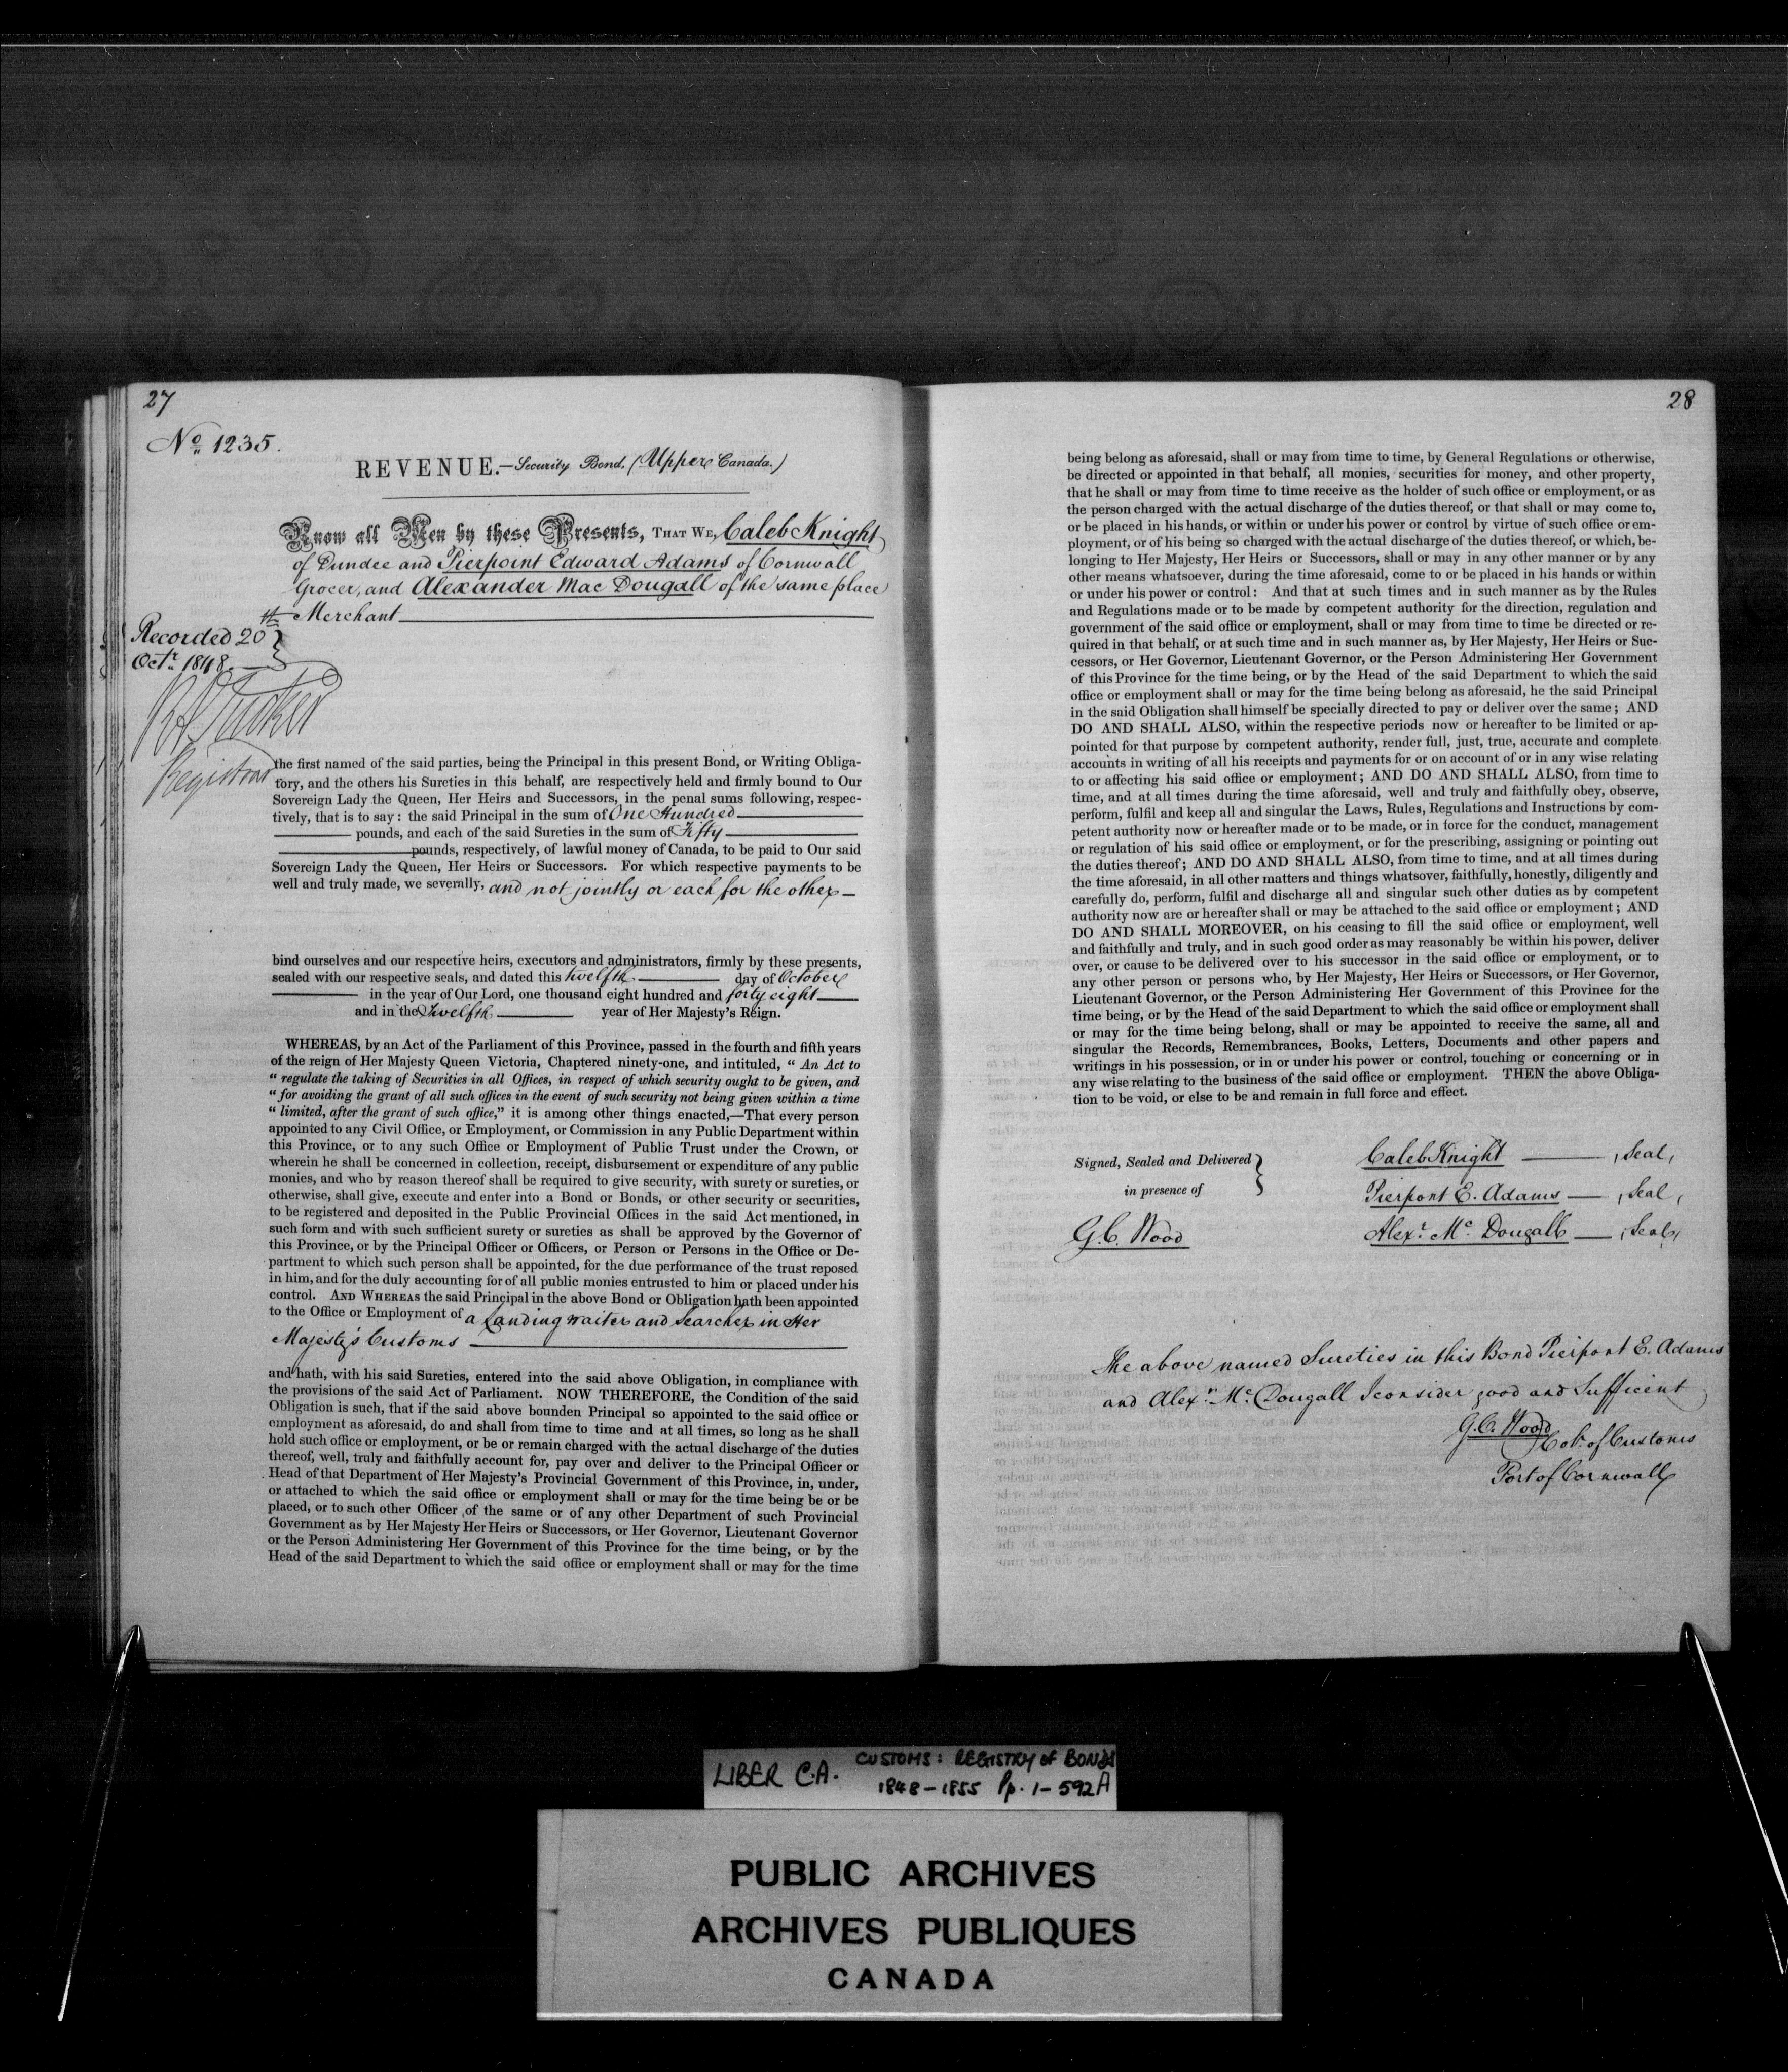 27
No 1235.
REVENUE.—Security Bond. (Upper Canada.)
Know all Men by these Presents, THAT WE, Caleb Knight
of Dundee and Pierpoint Edward Adams of Cornwall
Grocer, and Alexander Mac Dougall of the same place
Merchant
Recorded 20th
Octr. 1848.
R A Tucker
Registrar
the first named of the said parties, being the Principal in this present Bond, or Writing Obliga-
tory, and the others his Sureties in this behalf, are respectively held and firmly bound to Our
Sovereign Lady the Queen, Her Heirs and Successors, in the penal sums following, respec-
tively, that is to say: the said Principal in the sum of One Hundred
pounds, and each of the said Sureties in the sum of Fifty
pounds, respectively, of lawful money of Canada, to be paid to Our said
Sovereign Lady the Queen, Her Heirs or Successors. For which respective payments to be
well and truly made, we severally, and not jointly or each for the other—
bind ourselves and our respective heirs, executors and administrators, firmly by these presents,
sealed with our respective seals, and dated this twelfth day of October
in the year of Our Lord, one thousand eight hundred and forty eight
and in the Twelfth year of Her Majesty's Reign.
WHEREAS, by an Act of the Parliament of this Province, passed in the fourth and fifth years
of the reign of Her Majesty Queen Victoria, Chaptered ninety-one, and intituled, " An Act to
" regulate the taking of Securities in all Offices, in respect of which security ought to be given, and
" for avoiding the grant of all such offices in the event of such security not being given within a time
" limited, after the grant of such office," it is among other things enacted,—That every person
appointed to any Civil Office, or Employment, or Commission in any Public Department within
this Province, or to any such Office or Employment of Public Trust under the Crown, or
wherein he shall be concerned in collection, receipt, disbursement or expenditure of any public
monies, and who by reason thereof shall be required to give security, with surety or sureties, or
otherwise, shall give, execute and enter into a Bond or Bonds, or other security or securities,
to be registered and deposited in the Public Provincial Offices in the said Act mentioned, in
such form and with such sufficient surety or sureties as shall be approved by the Governor of
this Province, or by the Principal Officer or Officers, or Person or Persons in the Office or De-
partment to which such person shall be appointed, for the due performance of the trust reposed
in him, and for the duly accounting for of all public monies entrusted to him or placed under his
control. AND WHEREAS the said Principal in the above Bond or Obligation hath been appointed
to the Office or Employment of a Landing waiter and Searcher in Her
Majesty's Customs
and hath, with his said Sureties, entered into the said above Obligation, in compliance with
the provisions of the said Act of Parliament. NOW THEREFORE, the Condition of the said
Obligation is such, that if the said above bounden Principal so appointed to the said office or
employment as aforesaid, do and shall from time to time and at all times, so long as he shall
hold such office or employment, or be or remain charged with the actual discharge of the duties
thereof, well, truly and faithfully account for, pay over and deliver to the Principal Officer or
Head of that Department of Her Majesty's Provincial Government of this Province, in, under,
or attached to which the said office or employment shall or may for the time being be or be
placed, or to such other Officer of the same or of any other Department of such Provincial
Government as by Her Majesty Her Heirs or Successors, or Her Governor, Lieutenant Governor
or the Person Administering Her Government of this Province for the time being, or by the
Head of the said Department to which the said office or employment shall or may for the time
28
being belong as aforesaid, shall or may from time to time, by General Regulations or otherwise,
be directed or appointed in that behalf, all monies, securities for money, and other property,
that he shall or may from time to time receive as the holder of such office or employment, or as
the person charged with the actual discharge of the duties thereof, or that shall or may come to,
or be placed in his hands, or within or under his power or control by virtue of such office or em-
ployment, or of his being so charged with the actual discharge of the duties thereof, or which, be-
longing to Her Majesty, Her Heirs or Successors, shall or may in any other manner or by any
other means whatsoever, during the time aforesaid, come to or be placed in his hands or within
or under his power or control: And that at such times and in such manner as by the Rules
and Regulations made or to be made by competent authority for the direction, regulation and
government of the said office or employment, shall or may from time to time be directed or re-
quired in that behalf, or at such time and in such manner as, by Her Majesty, Her Heirs or Suc-
cessors, or Her Governor, Lieutenant Governor, or the Person Administering Her Government
of this Province for the time being, or by the Head of the said Department to which the said
office or employment shall or may for the time being belong as aforesaid, he the said Principal
in the said Obligation shall himself be specially directed to pay or deliver over the same; AND
DO AND SHALL ALSO, within the respective periods now or hereafter to be limited or ap-
pointed for that purpose by competent authority, render full, just, true, accurate and complete
accounts in writing of all his receipts and payments for or on account of or in any wise relating
to or affecting his said office or employment; AND DO AND SHALL ALSO, from time to
time, and at all times during the time aforesaid, well and truly and faithfully obey, observe,
perform, fulfil and keep all and singular the Laws, Rules, Regulations and Instructions by com-
petent authority now or hereafter made or to be made, or in force for the conduct, management
or regulation of his said office or employment, or for the prescribing, assigning or pointing out
the duties thereof; AND DO AND SHALL ALSO, from time to time, and at all times during
the time aforesaid, in all other matters and things whatsover, faithfully, honestly, diligently and
carefully do, perform, fulfil and discharge all and singular such other duties as by competent
authority now are or hereafter shall or may be attached to the said office or employment; AND
DO AND SHALL MOREOVER, on his ceasing to fill the said office or employment, well
and faithfully and truly, and in such good order as may reasonably be within his power, deliver
over, or cause to be delivered over to his successor in the said office or employment, or to
any other person or persons who, by Her Majesty, Her Heirs or Successors, or Her Governor,
Lieutenant Governor, or the Person Administering Her Government of this Province for the
time being, or by the Head of the said Department to which the said office or employment shall
or may for the time being belong, shall or may be appointed to receive the same, all and
singular the Records, Remembrances, Books, Letters, Documents and other papers and
writings in his possession, or in or under his power or control, touching or concerning or in
any wise relating to the business of the said office or employment. THEN the above Obliga-
tion to be void, or else to be and remain in full force and effect.
Signed, Sealed and Delivered
in presence of
G.C. Wood
Caleb Knight — , Seal,
Pierpont E. Adams — , Seal,
Alexr. Mc Dougall — , Seal,
The above named Sureties in this Bond Pierpont E. Adams
and Alexr. Mc Dougall I consider good and Sufficient
G.C. Wood
Colr. of Customs
Port of Cornwall
LIBER C.A. CUSTOMS: REGISTRY of BONDS
1848–1855 Pp. 1–592A
PUBLIC ARCHIVES
ARCHIVES PUBLIQUES
CANADA